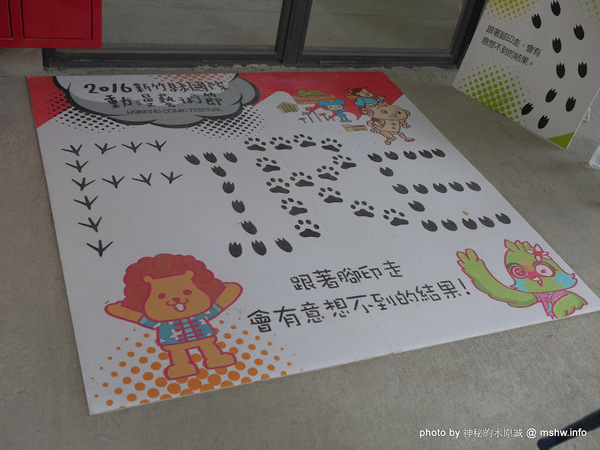 2016新竹縣國際
動漫藝術節
HSINCHU COMIC FESTIVAL
跟著腳印走，會有
意想不到的結果。
FIRE
跟著腳印走
會有意想不到的結果!
photo by 神秘的水原誠 @ mshw.info